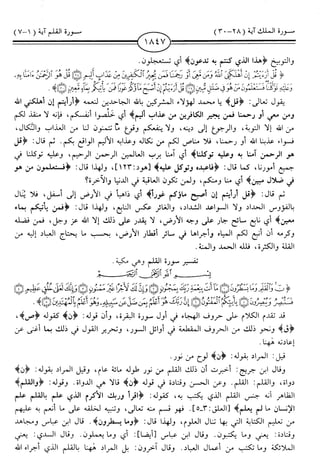 سورة الملك آية (٢٨-٣٠)
١٨٤٧
سورة القلم آية (١-٧)
والتوبيخ ﴿هذا الذي كنتم به تدعون﴾ أي تستعجلون.
يقول تعالى: ﴿قل﴾ يا محمد لهؤلاء المشركين بالله الجاحدين لنعمه ﴿أرأيتم إن أهلكني الله
ومن معي أو رحمنا فمن يجير الكافرين من عذاب أليم﴾ أي خلصوا أنفسكم، فإنه لا منقذ لكم
من الله إلا التوبة، والرجوع إلى دينه، ولا ينفعكم وقوع ما تتمنون لنا من العذاب والنكال،
فسواء عذبنا الله أو رحمنا، فلا مناص لكم من نكاله وعذابه الأليم الواقع بكم. ثم قال: ﴿قل
هو الرحمن آمنا به وعليه توكلنا﴾ أي آمنا برب العالمين الرحمن الرحيم، وعليه توكلنا في
جميع أمورنا، كما قال: ﴿فاعبده وتوكل عليه﴾ [هود: ١٢٣]، ولهذا قال: ﴿فستعلمون من هو
في ضلال مبين﴾ أي منا ومنكم، ولمن تكون العاقبة في الدنيا والآخرة؟
ثم قال: ﴿قل أرأيتم إن أصبح ماؤكم غوراً﴾ أي ذاهباً في الأرض إلى أسفل، فلا ينال
بالفؤوس الحداد ولا السواعد الشداد، والغائر عكس النابع، ولهذا قال: ﴿فمن يأتيكم بماء
معين﴾ أي نابع سائح جار على وجه الأرض، لا يقدر على ذلك إلا الله عز وجل، فمن فضله
وكرمه أن أنبع لكم المياه وأجراها في سائر أقطار الأرض، بحسب ما يحتاج العباد إليه من
القلة والكثرة، فلله الحمد والمنة.
تفسير سورة القلم وهي مكية.
قد تقدم الكلام على حروف الهجاء في أول سورة البقرة، وأن قوله: ﴿ن﴾ كقوله ﴿ص﴾،
﴿ق﴾ ونحو ذلك من الحروف المقطعة في أوائل السور، وتحرير القول في ذلك بما أغنى عن
إعادته ههنا.
قيل: المراد بقوله: ﴿ن﴾ لوح من نور.
وقال ابن جريج: أخبرت أن ذلك القلم من نور طوله مائة عام، وقيل المراد بقوله: ﴿ن﴾
دواة، والقلم: القلم. وعن الحسن وقتادة في قوله ﴿ن﴾ قالا هي الدواة. وقوله: ﴿والقلم﴾
الظاهر أنه جنس القلم الذي يكتب به، كقوله: ﴿اقرأ وربك الأكرم الذي علم بالقلم علم
الإنسان ما لم يعلم﴾ [العلق: ٣-٥]. فهو قسم منه تعالى، وتنبيه لخلقه على ما أنعم به عليهم
من تعليم الكتابة التي بها تنال العلوم، ولهذا قال: ﴿وما يسطرون﴾. قال ابن عباس ومجاهد
وقتادة: يعني وما يكتبون. وقال ابن عباس [أيضا]: أي وما يعملون. وقال السدي: يعني
الملائكة وما تكتب من أعمال العباد. وقال آخرون: بل المراد ههنا بالقلم الذي أجراه الله